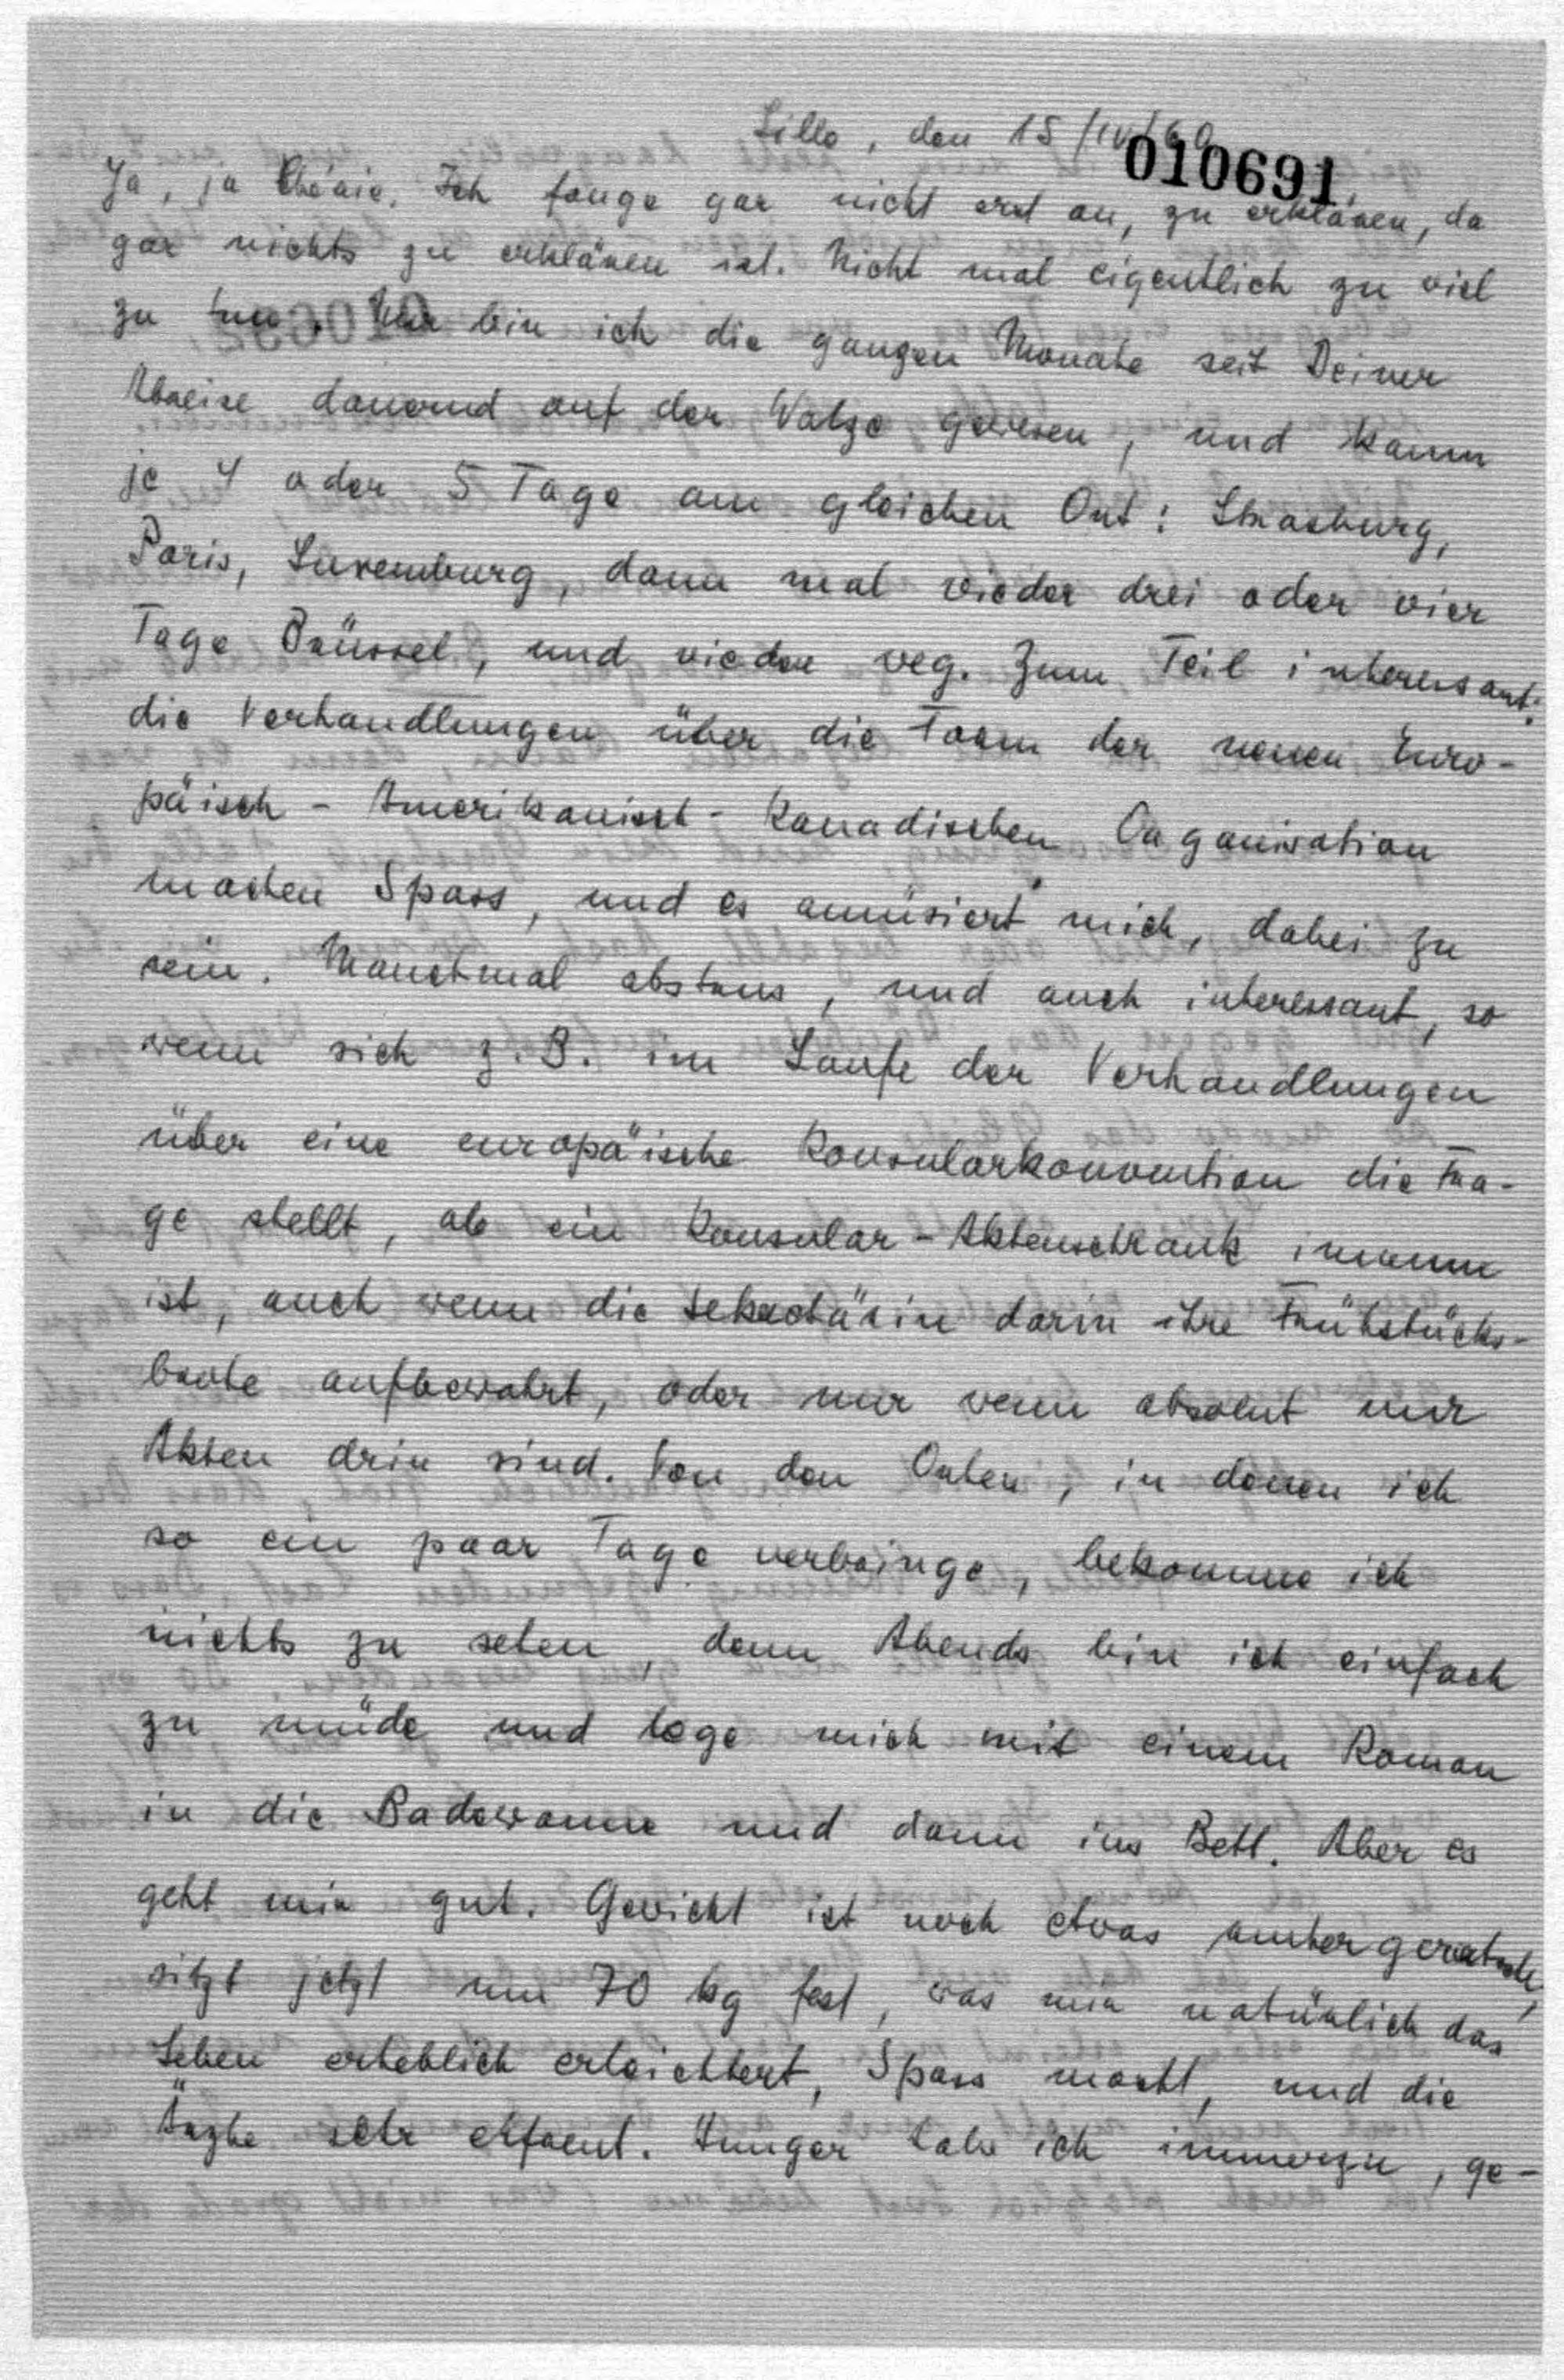 Lille, den 15/IV/60
010691
Ja, ja Chérie. Ich fange gar nicht erst an, zu erklären, da
gar nichts zu erklären ist. Nicht mal eigentlich zu viel
zu tun. Nur bin ich die ganzen Monate seit Deiner
Abreise dauernd auf der Walze gewesen, und kaum
je 4 oder 5 Tage am gleichen Ort: Strasburg,
Paris, Luxemburg, dann mal wieder drei oder vier
Tage Brüssel, und wieder weg. Zum Teil interessant:
die Verhandlungen über die Form der neuen Euro-
päisch - Amerikanisch - Kanadischen Organisation
machen Spass, und es amüsiert mich, dabei zu
sein. Manchmal abstrus, und auch interessant, so
wenn sich z.B. im Laufe der Verhandlungen
über eine europäische Konsularkonvention die Fra-
ge stellt, ob ein Konsular - Aktenschrank immun
ist, auch wenn die Sekretärin darin ihre Frühstücks-
brote aufbewahrt, oder nur wenn absolut nur
Akten drin sind. Von den Orten, in denen ich
so ein paar Tage verbringe, bekomme ich
nichts zu sehen, denn Abends bin ich einfach
zu müde und lege mich mit einem Roman
in die Badewanne und dann ins Bett. Aber es
geht mir gut. Gewicht ist noch etwas runtergerutscht,
sitzt jetzt um 70 kg fest, was mir natürlich das
Leben erheblich erleichtert, Spass macht, und die
Ärzte sehr erfreut. Hunger habe ich immerzu, ge-